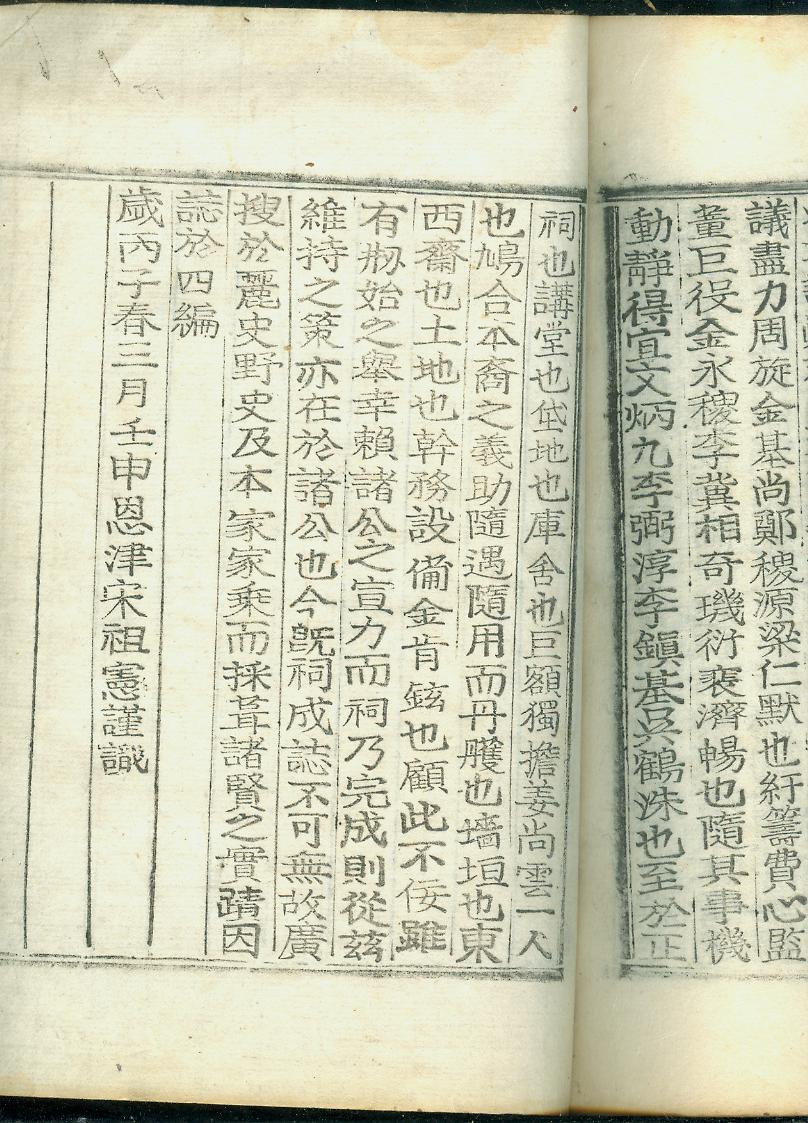 議盡力周旋金基尚鄭稷源梁仁默也紆籌費心監
董巨役金永稷李冀相奇璣衍裵濟暢也隨其事機
動靜得宜文炳九李弼淳李鎭基吳鶴洙也至於正
祠也講堂也垈地也庫舍也巨額獨擔姜尚雲一人
也鳩合本裔之義助隨遇隨用而丹雘也墻垣也東
西齋也土地也幹務設備金肯鉉也顧此不佞雖
有刱始之擧幸賴諸公之宣力而祠乃完成則從玆
維持之策亦在於諸公也今旣祠成誌不可無故廣
搜於麗史野史及本家家乗而採葺諸賢之實蹟因
誌於四編
歲丙子春三月壬申恩津宋祖憲謹識